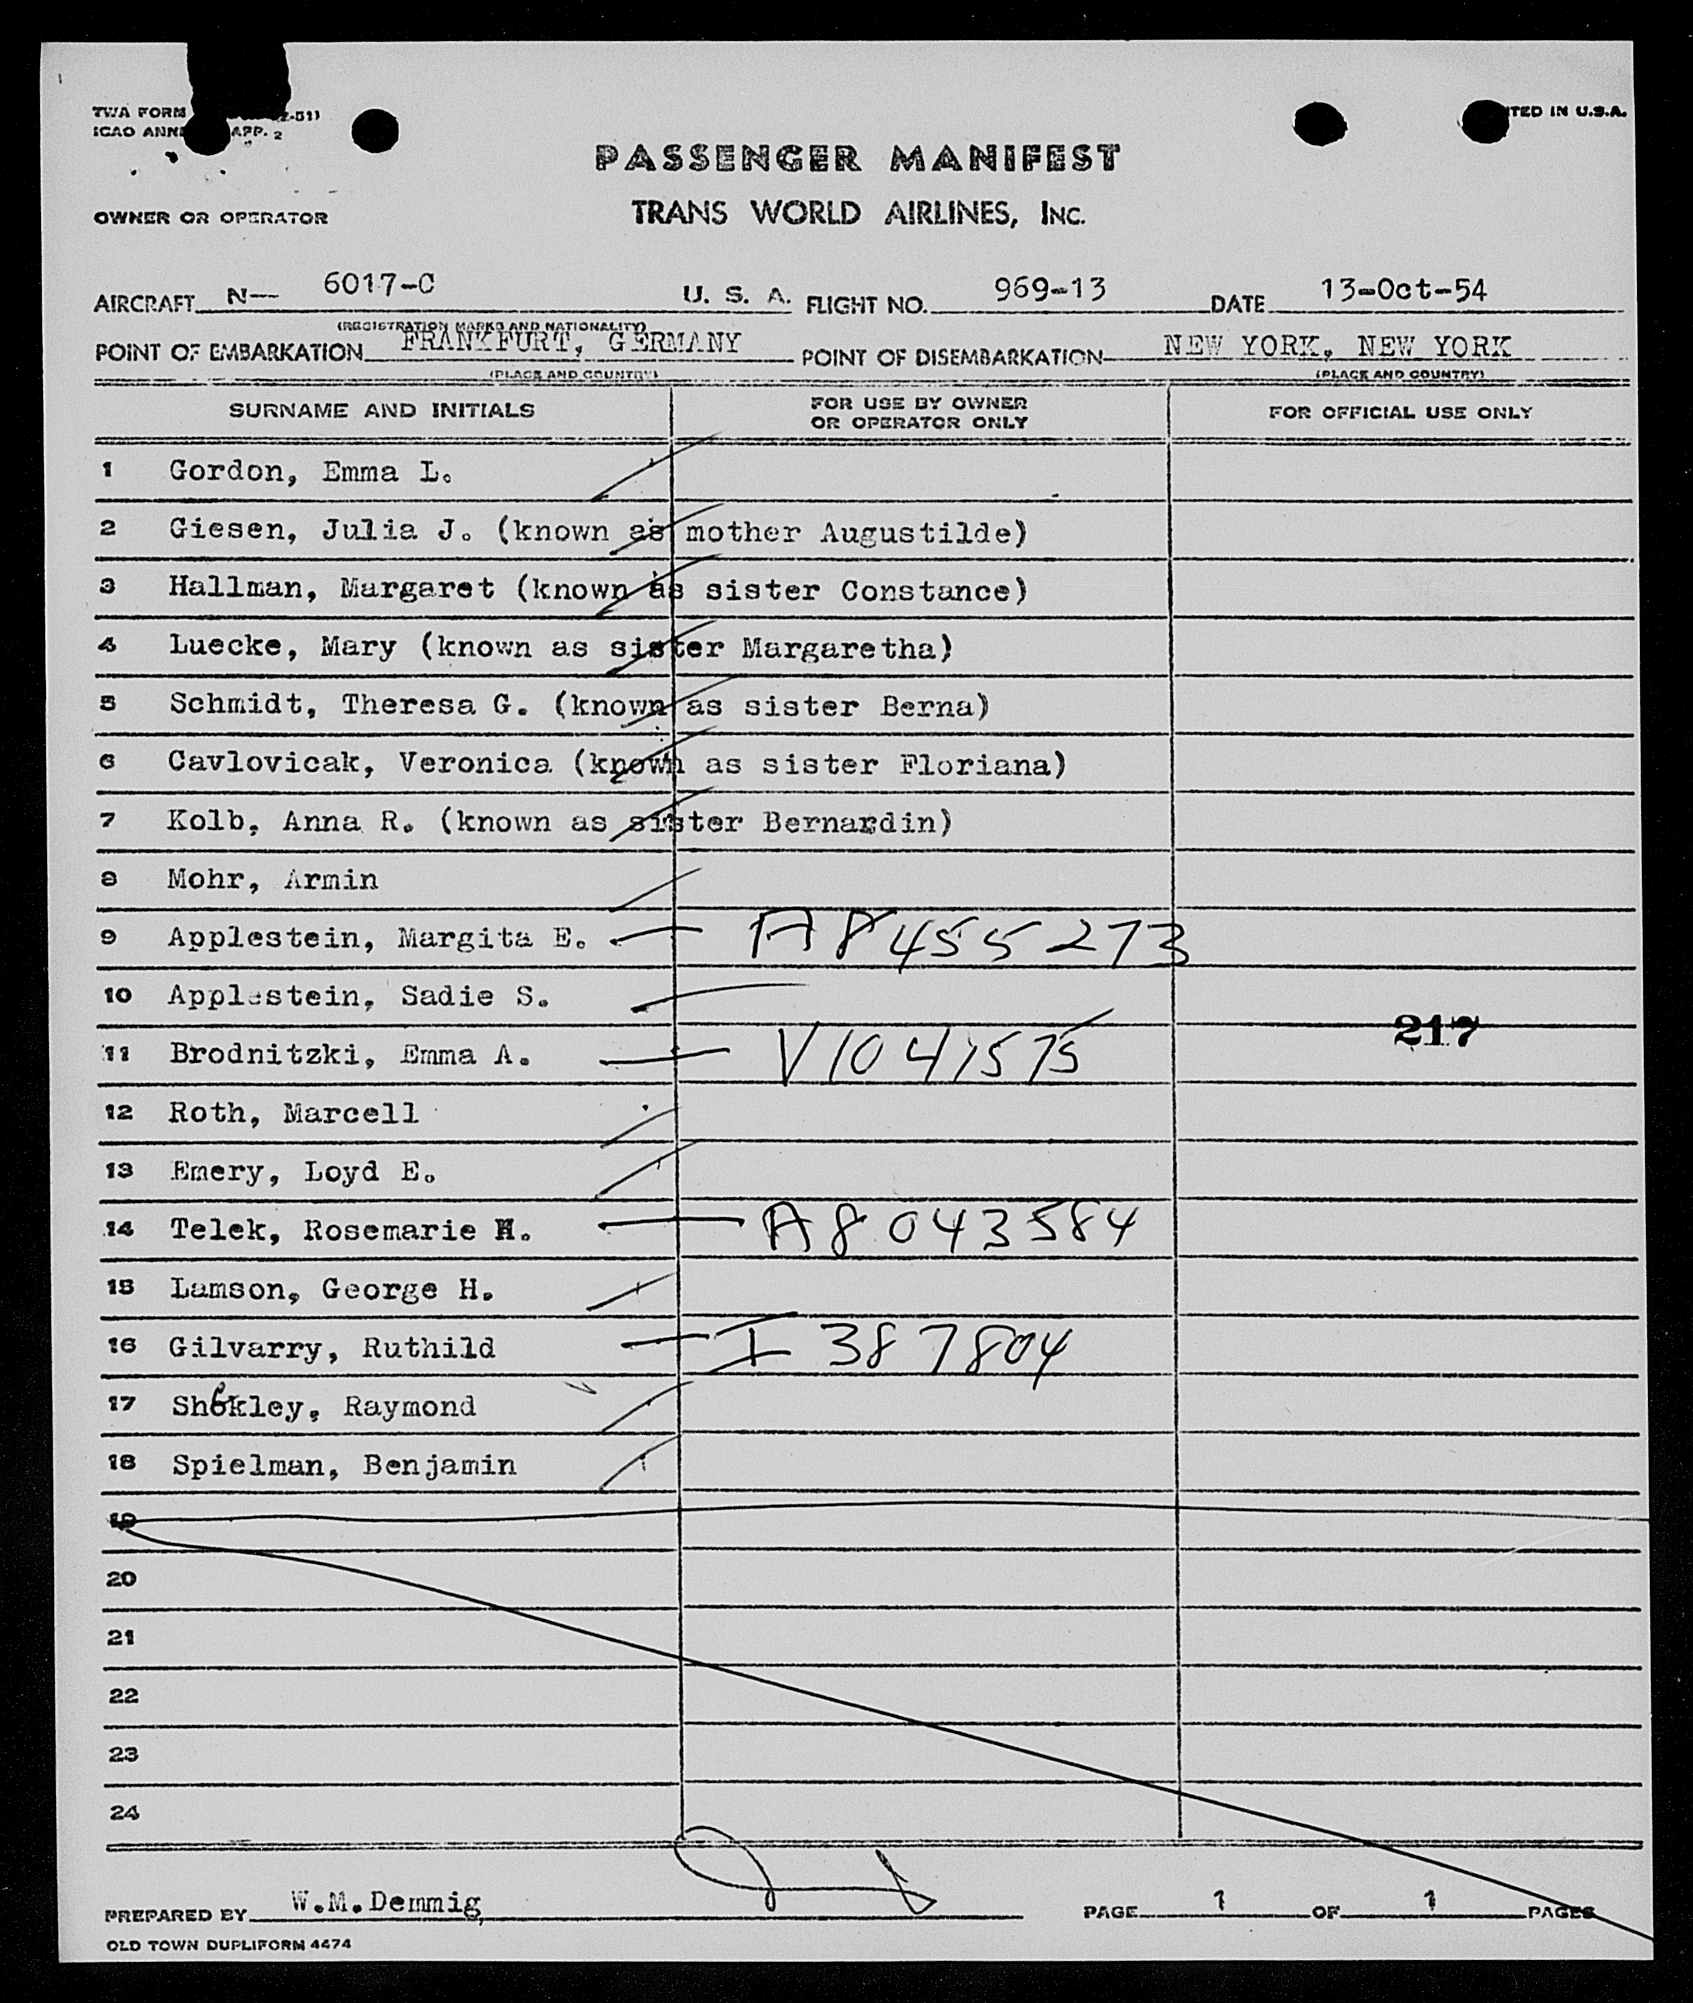 TWA FORM 2-51)
ICAO ANNE APP. 2
TED IN U.S.A.
PASSENGER MANIFEST
OWNER OR OPERATOR TRANS WORLD AIRLINES, INC.
AIRCRAFT N— 6017-C U. S. A. FLIGHT NO. 969-13 DATE 13-Oct-54
(REGISTRATION MARKS AND NATIONALITY)
POINT OF EMBARKATION FRANKFURT, GERMANY POINT OF DISEMBARKATION NEW YORK, NEW YORK
(PLACE AND COUNTRY) (PLACE AND COUNTRY)
SURNAME AND INITIALS FOR USE BY OWNER OR OPERATOR ONLY FOR OFFICIAL USE ONLY
1 Gordon, Emma L.
2 Giesen, Julia J. (known as mother Augustilde)
3 Hallman, Margaret (known as sister Constance)
4 Luecke, Mary (known as sister Margaretha)
5 Schmidt, Theresa G. (known as sister Berna)
6 Cavlovicak, Veronica (known as sister Floriana)
7 Kolb, Anna R. (known as sister Bernardin)
8 Mohr, Armin
9 Applestein, Margita E. A8455273
10 Applestein, Sadie S.
217
11 Brodnitzki, Emma A. V1041575
12 Roth, Marcell
13 Emery, Loyd E.
14 Telek, Rosemarie H. A8043584
15 Lamson, George H.
16 Gilvarry, Ruthild I 387804
17 Shekley, Raymond
18 Spielman, Benjamin
19
20
21
22
23
24
PREPARED BY W.M.Demmig PAGE 1 OF 1 PAGES
OLD TOWN DUPLIFORM 4474